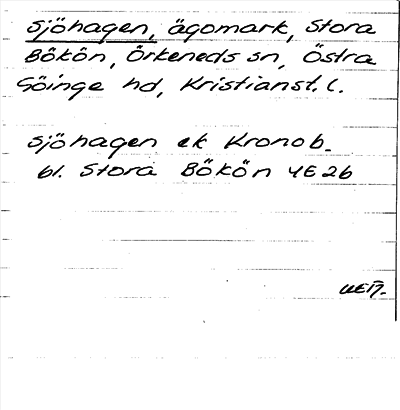 Sjöhagen, ägomark, Stora
Bökön, Örkeneds sn, Östra
Göinge hd, Kristianst. l.
Sjöhagen ek Kronob.
bl. Stora Bökön 4E 2b